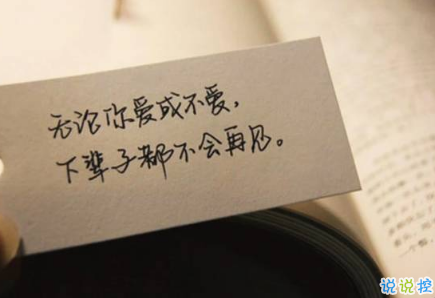 无论你爱或不爱，
下辈子都不会再见。
说说控